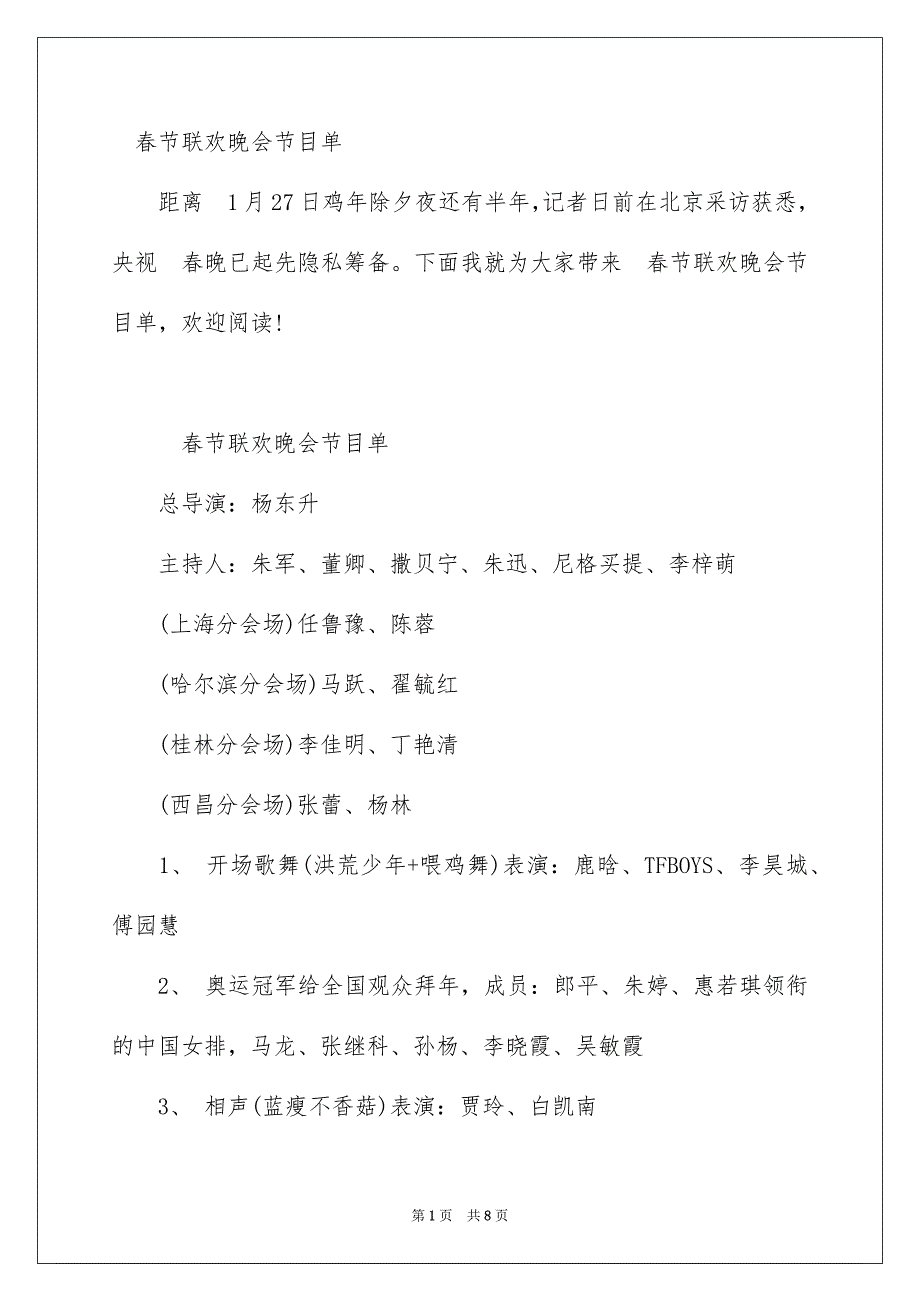 春节联欢晚会节目单
距离　1月27日鸡年除夕夜还有半年，记者日前在北京采访获悉，
央视　春晚已起先隐私筹备。下面我就为大家带来　春节联欢晚会节
目单，欢迎阅读!
春节联欢晚会节目单
总导演：杨东升
主持人：朱军、董卿、撒贝宁、朱迅、尼格买提、李梓萌
(上海分会场)任鲁豫、陈蓉
(哈尔滨分会场)马跃、翟毓红
(桂林分会场)李佳明、丁艳清
(西昌分会场)张蕾、杨林
1、 开场歌舞(洪荒少年+喂鸡舞)表演：鹿晗、TFBOYS、李昊城、
傅园慧
2、 奥运冠军给全国观众拜年，成员：郎平、朱婷、惠若琪领衔
的中国女排，马龙、张继科、孙杨、李晓霞、吴敏霞
3、 相声(蓝瘦不香菇)表演：贾玲、白凯南
第 1 页　共 8 页